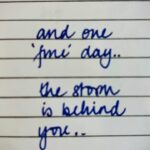 and one
'fine' day..
the storm
is behind
you...